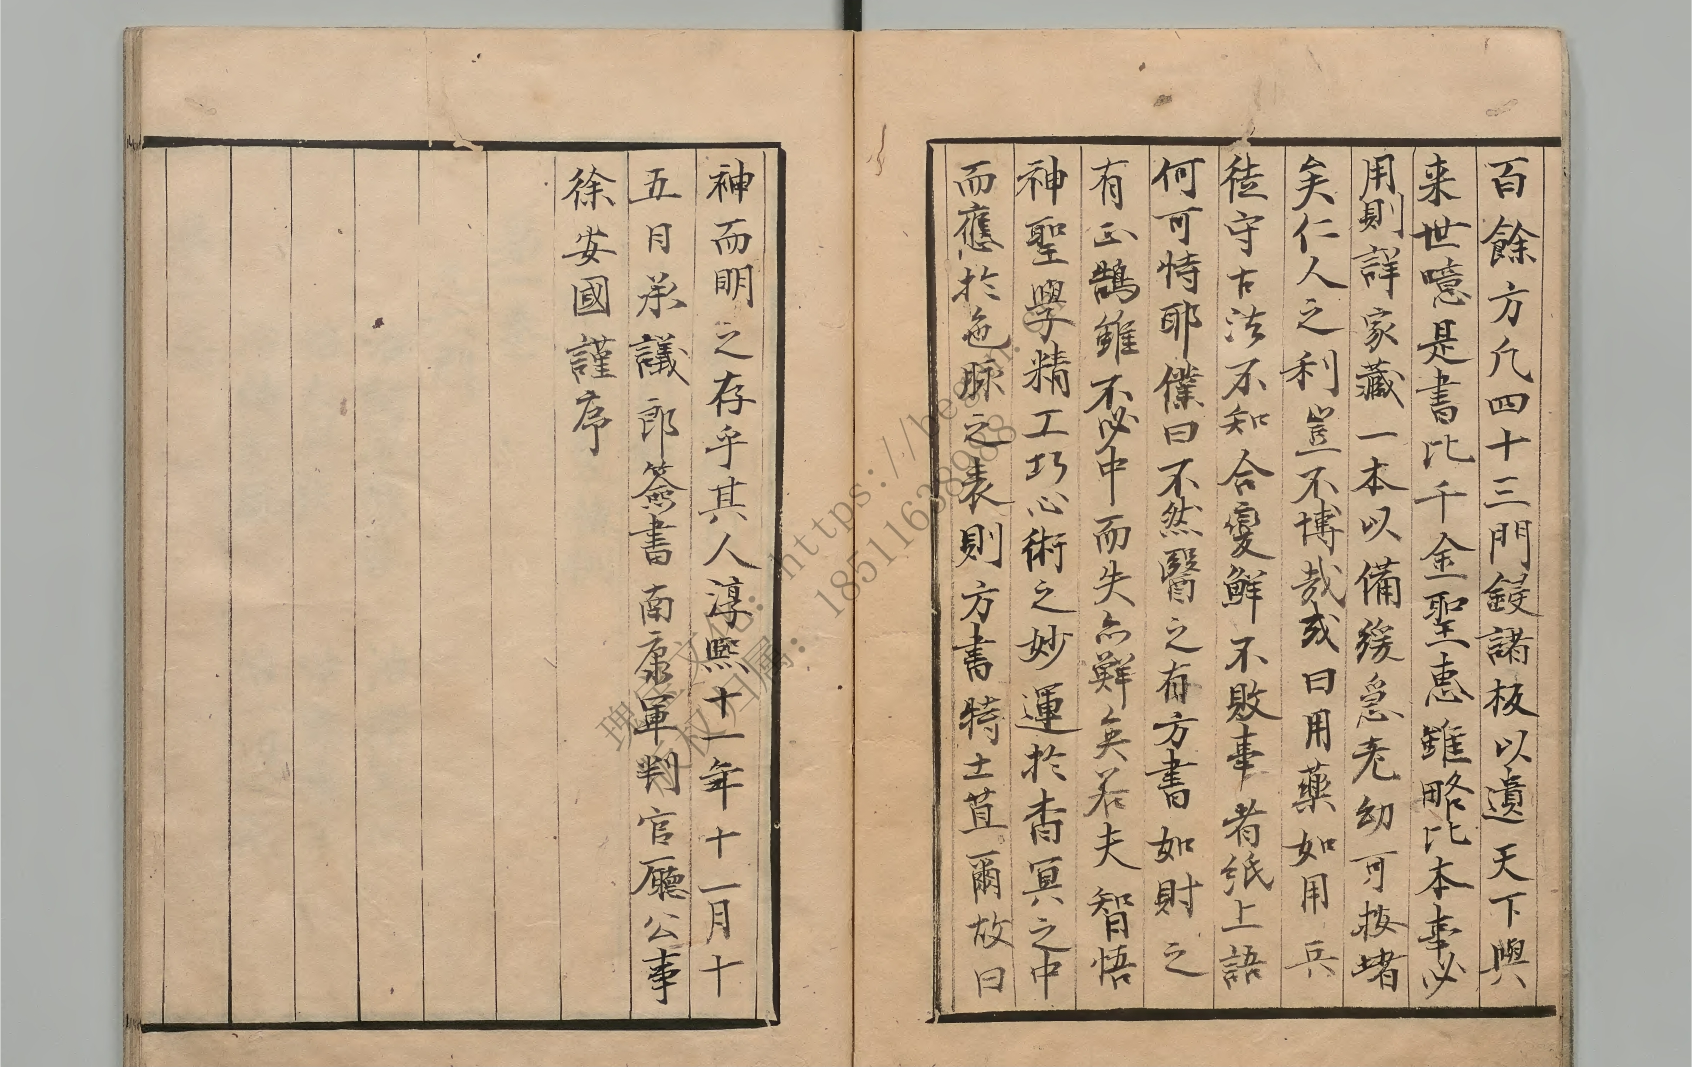 百餘方凡四十三門鋟諸板以遺天下與
来世噫是書比千金聖恵雖略比本事必
用則詳家藏一本以備緩急老幼可按堵
矣仁人之利豈不博哉或曰用藥如用兵
徒守古法不知合變鮮不敗事者紙上語
何可恃耶僕曰不然醫之有方書如財之
有正鵠雖不必中而失亦鮮矣若夫智悟
神聖學精工巧心術之妙運於杳冥之中
而應於色脉之表則方書特土苴爾故曰
神而明之存乎其人淳熙十一年十一月十
五日承議郎簽書南康軍判官廳公事
徐安國謹序
https://be
18511638988